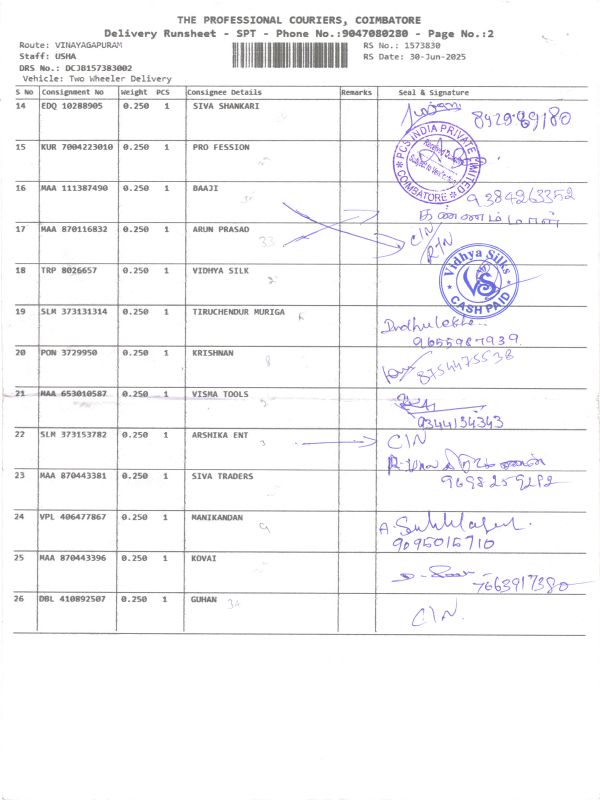 THE PROFESSIONAL COURIERS, COIMBATORE
Delivery Runsheet - SPT - Phone No.:9047080280 - Page No.:2
Route: VINAYAGAPURAM RS No.: 1573830
Staff: USHA RS Date: 30-Jun-2025
DRS No.: DCJB157383002
Vehicle: Two Wheeler Delivery
S No Consignment No Weight PCS Consignee Details Remarks Seal & Signature
14 EDQ 10288905 0.250 1 SIVA SHANKARI
15 KUR 7004223010 0.250 1 PRO FESSION
PCS INDIA PRIVATE LIMITED
COIMBATORE
16 MAA 111387490 0.250 1 BAAJI 9384263352
17 MAA 870116832 0.250 1 ARUN PRASAD 33 CIN/
RTN
18 TRP 8026657 0.250 1 VIDHYA SILK 2
Vidhya Silks
VS
CASH PAID
19 SLM 373131314 0.250 1 TIRUCHENDUR MURIGA
Indhulekha
9655967939
20 PON 3729950 0.250 1 KRISHNAN 8 8754475538
21 MAA 653010587 0.250 1 VISMA TOOLS
9344134343
22 SLM 373153782 0.250 1 ARSHIKA ENT 3 CIN
23 MAA 870443381 0.250 1 SIVA TRADERS
9698259292
24 VPL 406477867 0.250 1 MANIKANDAN 9
9095015710
25 MAA 870443396 0.250 1 KOVAI
7663917380
26 DBL 410892507 0.250 1 GUHAN 34 CIN.